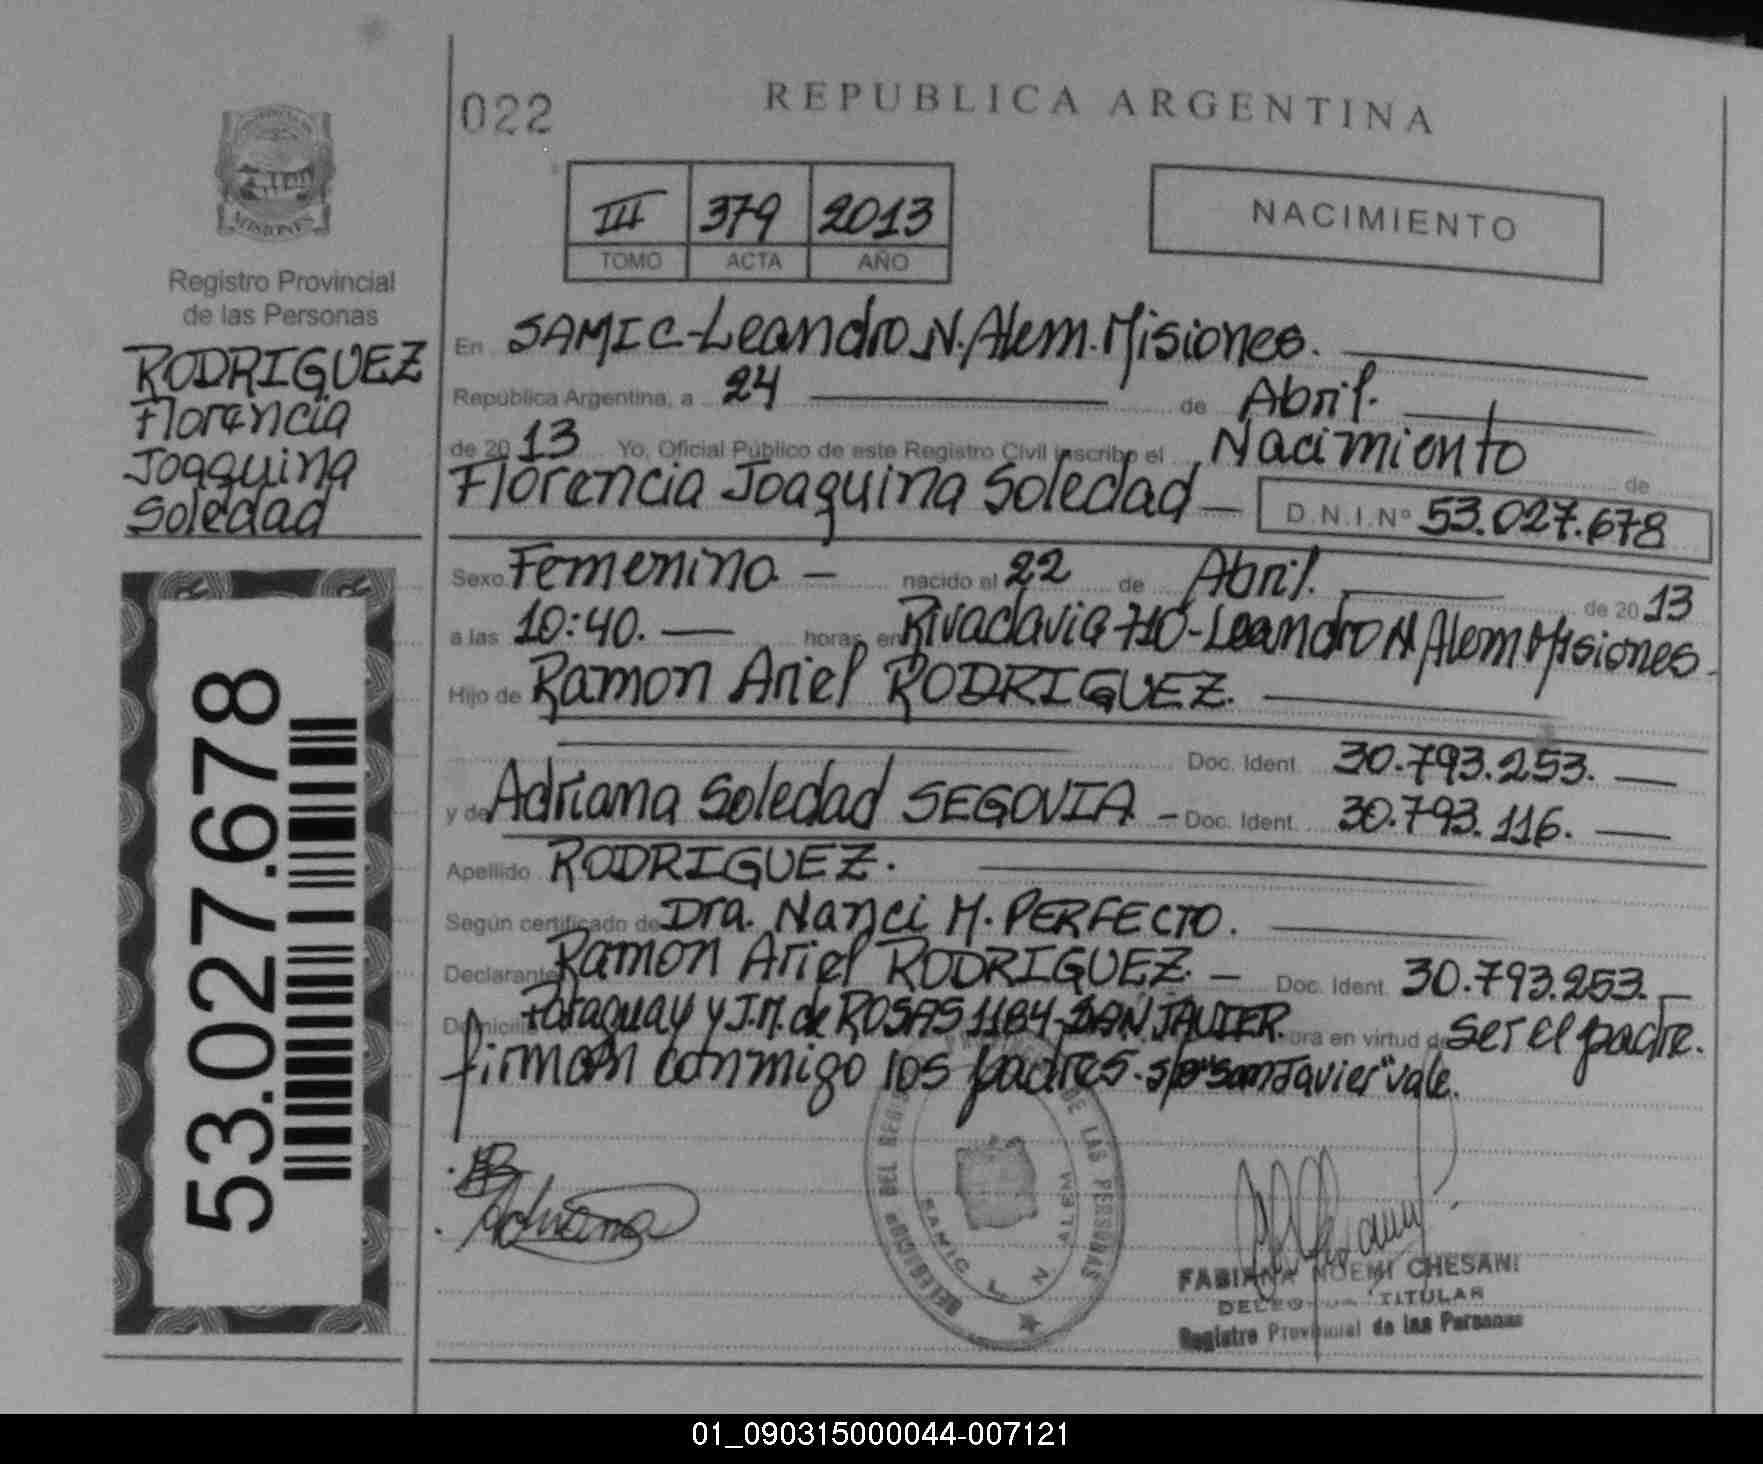 022
REPUBLICA ARGENTINA
MISIONES
Registro Provincial
de las Personas
RODRIGUEZ
Florencia
Joaquina
Soledad
53.027.678
III 379 2013
TOMO ACTA AÑO
NACIMIENTO
En SAMIC-Leandro N. Alem. Misiones.
República Argentina, a 24 de Abril.
de 2013 Yo, Oficial Público de este Registro Civil inscribo el Nacimiento de
Florencia Joaquina Soledad — D.N.I.Nº 53.027.678
Sexo Femenino — nacido el 22 de Abril. de 2013
a las 10:40. — horas, en Rivadavia 710-Leandro N Alem Misiones.
Hijo de Ramon Ariel RODRIGUEZ.
Doc. Ident. 30.793.253. —
y de Adriana Soledad SEGOVIA. — Doc. Ident. 30.793.116. —
Apellido RODRIGUEZ.
Según certificado de Dra. Nanci M. PERFECTO.
Declarante Ramon Ariel RODRIGUEZ. — Doc. Ident. 30.793.253. —
Domicilio Paraguay y J.M. de ROSAS 1184-SAN JAVIER. en virtud de ser el padre.
firman conmigo los padres. s/b "San Javier" vale.
Adriana
DELEGACION DEL REGISTRO DE LAS PERSONAS
SAMIC L N ALEM
FABIANA NOEMI CHESANI
TITULAR
Registro Provincial de las Personas
01_090315000044-007121